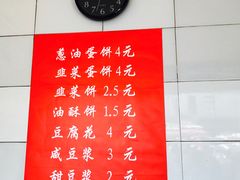 葱油蛋饼4元
韭菜蛋饼4元
韭菜饼2.5元
油酥饼1.5元
豆腐花 4 元
咸豆浆 3 元
甜豆浆 2 元